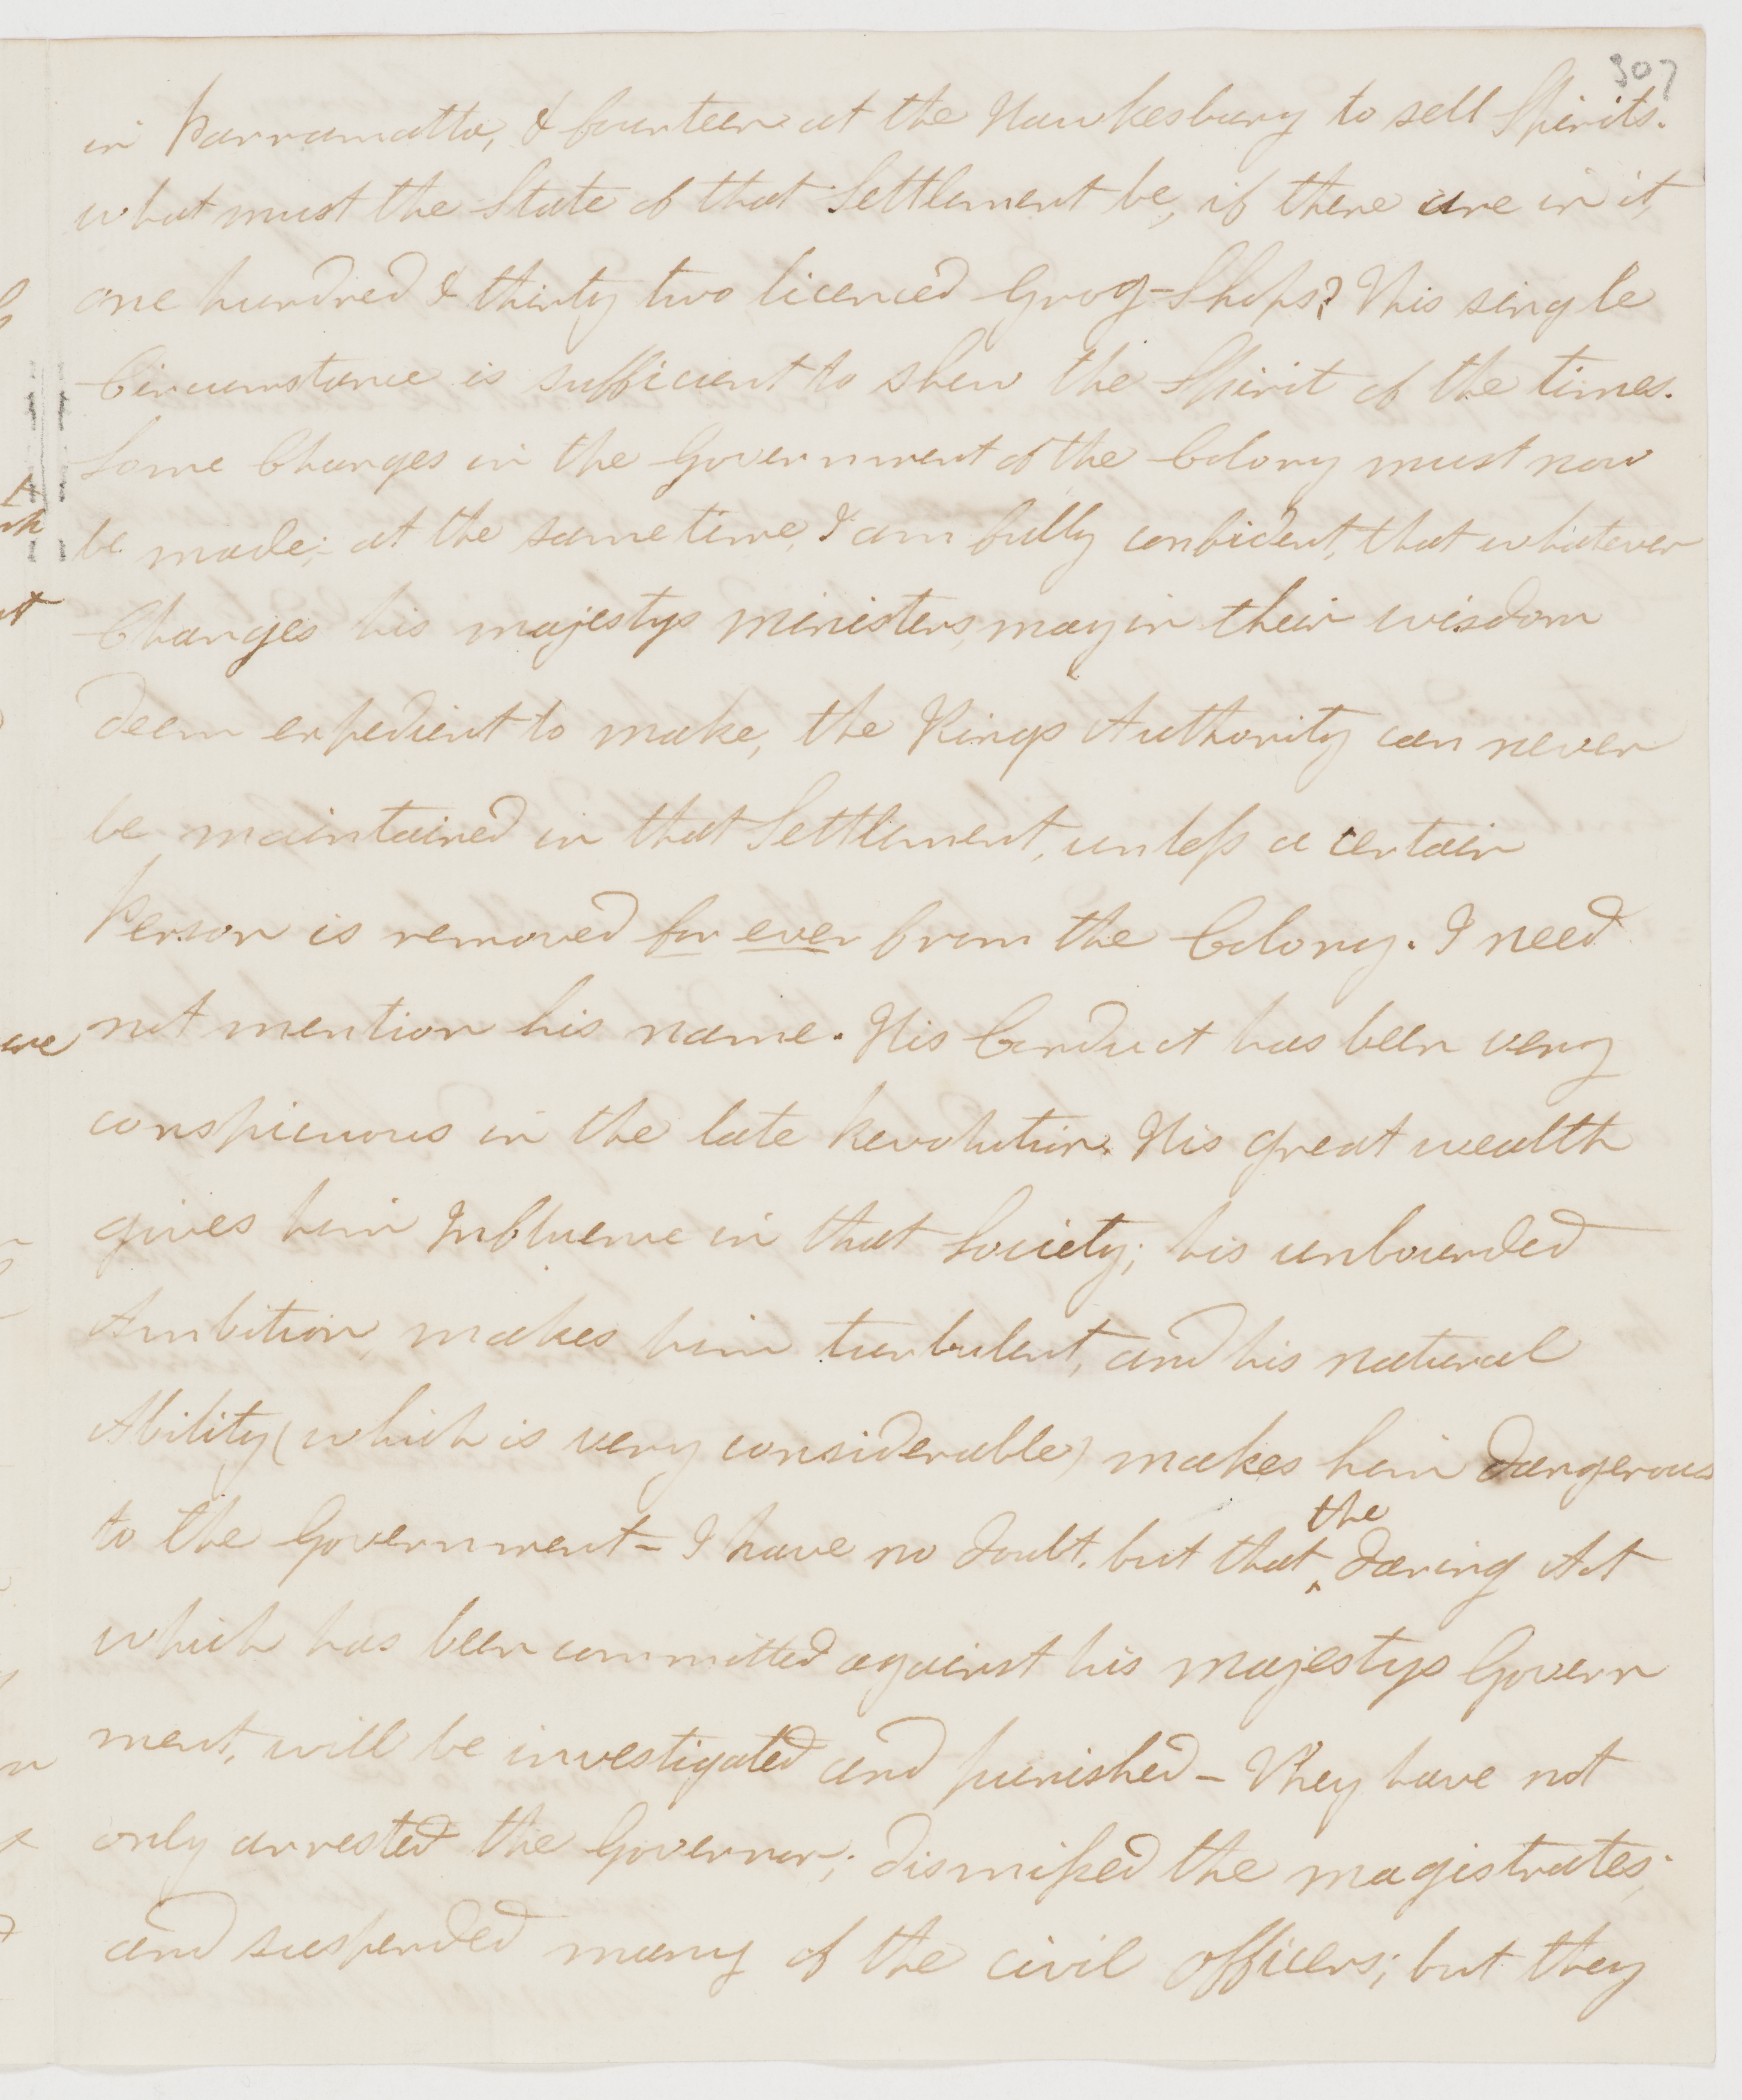 307
in Parramatta, & fourteen at the Hawkesbury to sell Spirits.
what must the State of that Settlement be, if there are in it,
one hundred & thirty two licenced Grog-Shops? This single
Circumstance is sufficient to shew the Spirit of the times.
Some Changes in the Government of the Colony must now
be made; at the same time, I am fully confident, that whatever
Changes his majestys ministers, may in their wisdom
deem expedient to make, the Kings Authority can never
be maintained in that Settlement, unless a certain
Person is removed for ever from the Colony. I need
not mention his name. His Conduct has been very
conspicuous in the late Revolution. His great wealth
gives him Influence in that Society; his unbounded
Ambition, makes him turbulent, and his natural
Ability (which is very considerable) makes him dangerous
to the Government - I have no doubt, but that ^the daring Act
which has been committed against his majestys Govern
ment, will be investigated and punished - They have not
only arrested the Governor; dismissed the magistrates;
and suspended many of the civil officers; but they